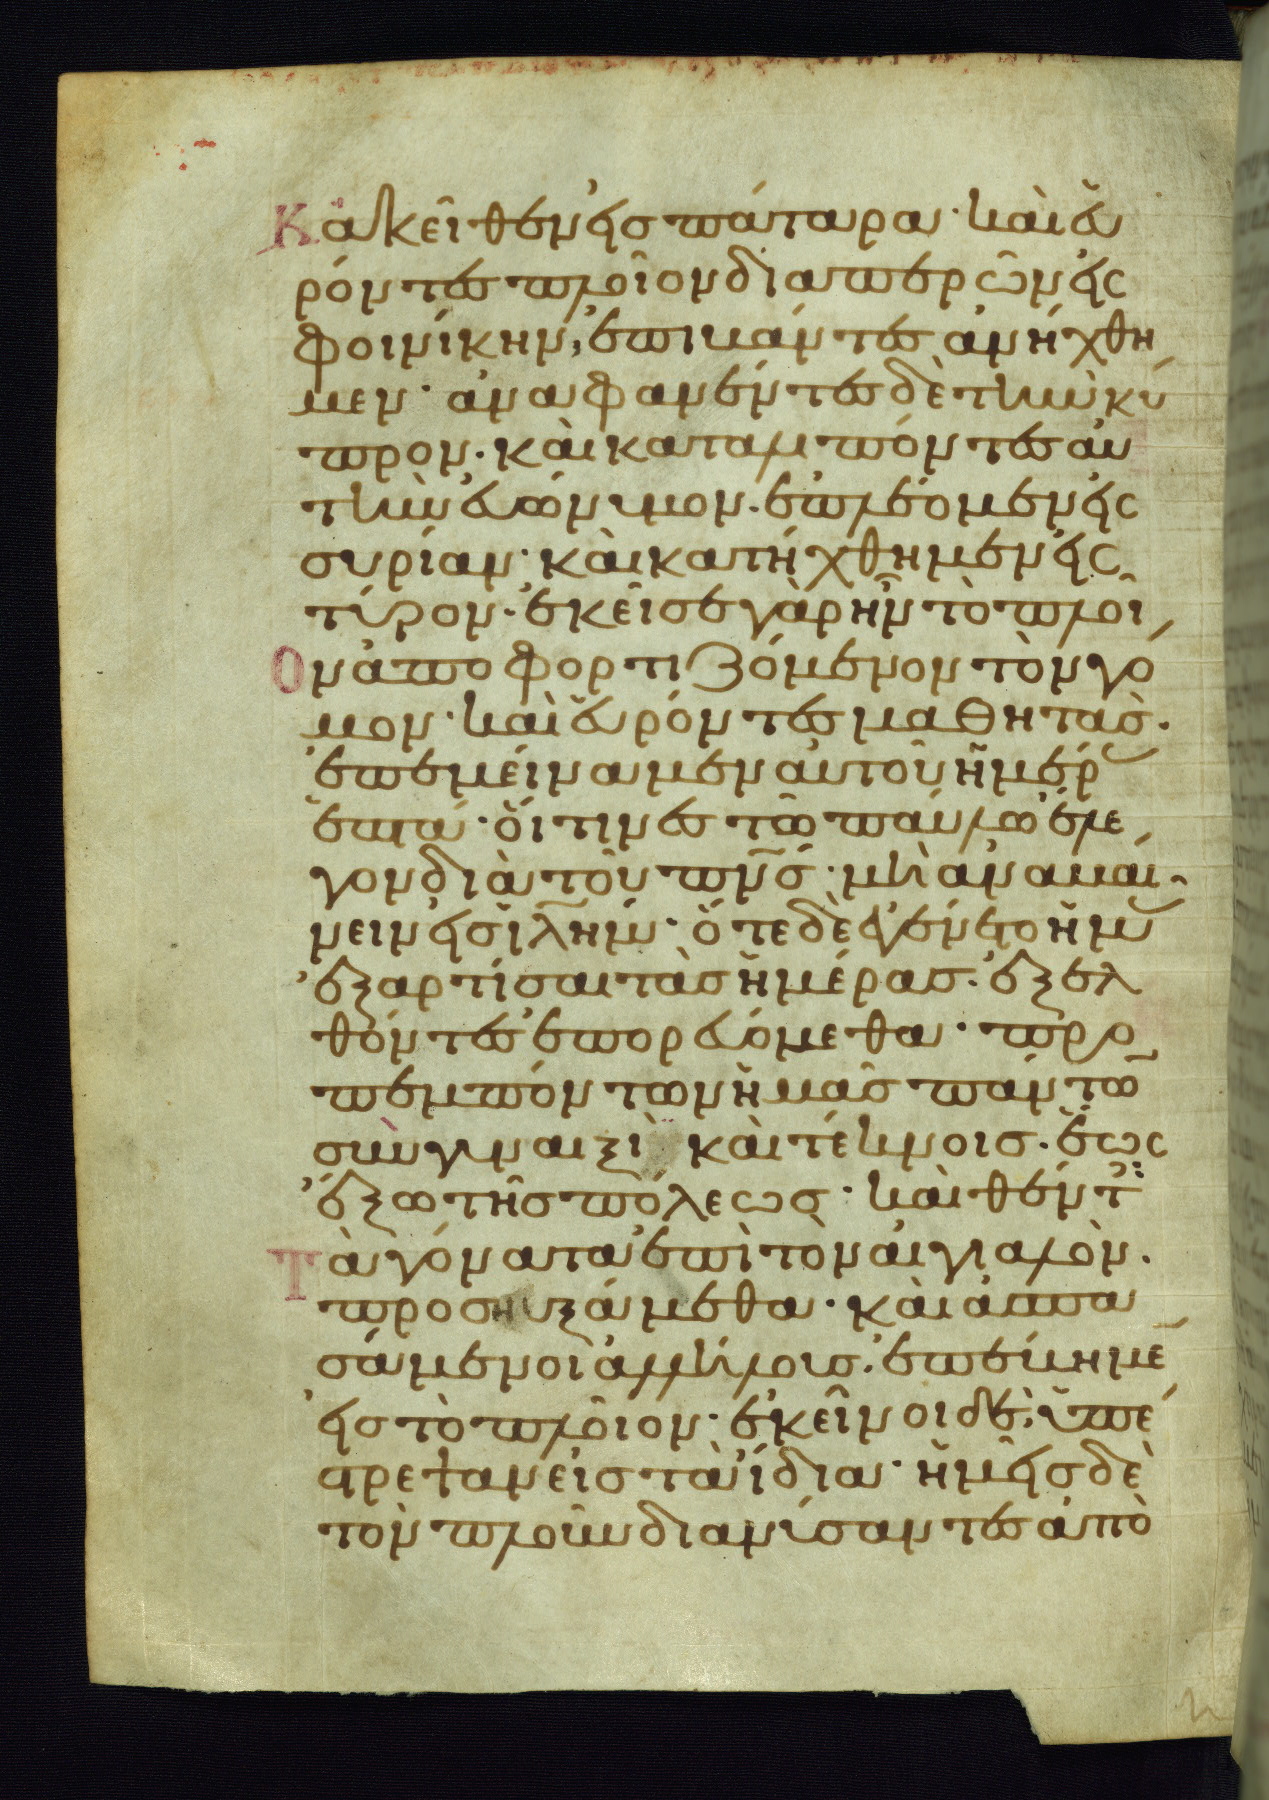 Κἀκεῖθεν εἰς πάταρα· καὶ εὑ
ρόντες πλοῖον διαπερῶν εἰς
φοινίκην, ἐπιβάντες ἀνήχθη
μεν· ἀναφανέντες δὲ τὴν κύ
προν· καὶ καταλιπόντες αὐ
τὴν εὐώνυμον· ἐπλέομεν εἰς
συρίαν· καὶ κατήχθημεν εἰς
τύρον· ἐκεῖσε γὰρ ἦν τὸ πλοῖ
Ον ἀποφορτιζόμενον τὸν γό
μον· καὶ εὑρόντες μαθητὰς·
ἐπεμείναμεν αὐτοῦ ἡμέρ
ἑπτά· οἵτινες τῶ παύλω ἔλε
γον διὰ τοῦ πν̅ς· μὴ ἀναβαί
νειν εἰς ἰλ̅ημ· ὅτε δὲ ἐγένετο ἡμ
ἐξαρτίσαι τὰς ἡμέρας· ἐξελ
θόντες ἐπορευόμεθα· προ
πεμπόντων ἡμᾶς πάντω̅
σὺν γυναιξὶ καὶ τέκνοις· ἕως
ἔξω τῆς πόλεως· καὶ θέντ
Τὰ γόνατα ἐπὶ τὸν αἰγιαλὸν·
προσηυξάμεθα· καὶ ἀσπα
σάμενοι ἀλλήλους· ἐπέβημε̅
εἰς τὸ πλοῖον· ἐκεῖνοι δὲ, ὑπέ
στρεψαν εἰς τὰ ἴδια· ἡμεῖς δὲ
τὸν πλοῦν διανύσαντες ἀπὸ